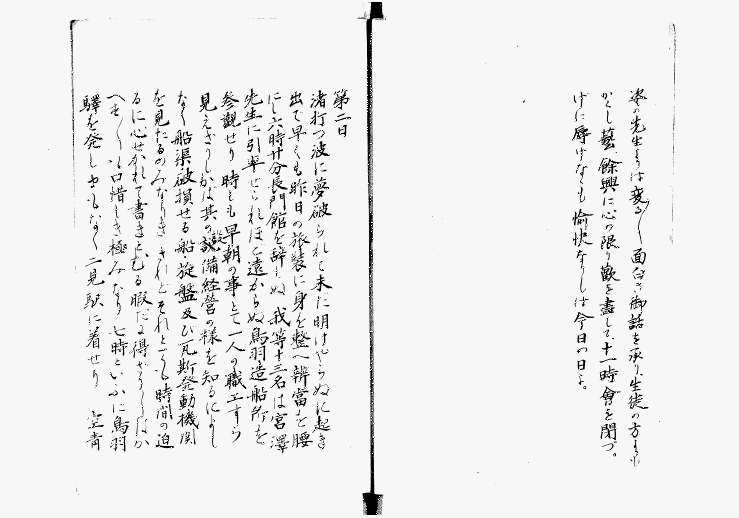 の先生よりは変る〲面白き御話を承り生徒の方よりは
かくし藝、餘興に心の限り歡を盡して、十一時會を閉づ。
げに辱けなくも愉快なりしは今日の日よ。
第二日
渚打つ波に夢破られて未だ明けやらぬに起き
出で早くも昨日の旅装に身を整へ辨當を腰
にし六時廿分長門館を辭しぬ 我等十三名は宮澤
先生に引率せられほど遠からぬ鳥羽造船所を
參觀せり 時しも早朝の事とて一人の職工すら
見えざりしかば其の設備経営の様を知るによし
なく船渠破損せる船・旋盤及び瓦斯発動機関
を見たるのみなりき されどそれとても時間の迫
るに心せかれて書きとむる暇だに得ざりしはか
へす〲も口惜しき極みなり 七時といふに鳥羽
驛を発し もなく二見駅に着せり 空青